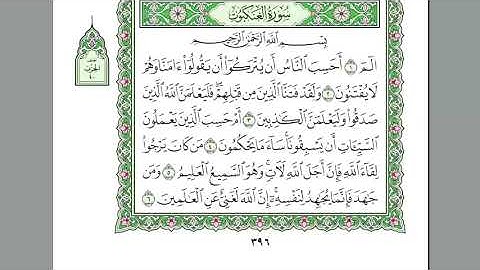 سُورَةُ العَنكَبُوتِ
بِسْمِ اللَّهِ الرَّحْمَٰنِ الرَّحِيمِ
الٓمٓ ١ أَحَسِبَ النَّاسُ أَن يُتْرَكُوٓا۟ أَن يَقُولُوٓا۟ ءَامَنَّا وَهُمْ
لَا يُفْتَنُونَ ٢ وَلَقَدْ فَتَنَّا الَّذِينَ مِن قَبْلِهِمْ فَلَيَعْلَمَنَّ اللَّهُ الَّذِينَ
صَدَقُوا۟ وَلَيَعْلَمَنَّ الْكَٰذِبِينَ ٣ أَمْ حَسِبَ الَّذِينَ يَعْمَلُونَ
السَّيِّـَٔاتِ أَن يَسْبِقُونَا سَآءَ مَا يَحْكُمُونَ ٤ مَن كَانَ يَرْجُوا۟
لِقَآءَ اللَّهِ فَإِنَّ أَجَلَ اللَّهِ لَـَٔاتٍ وَهُوَ السَّمِيعُ الْعَلِيمُ ٥ وَمَن
جَٰهَدَ فَإِنَّمَا يُجَٰهِدُ لِنَفْسِهِۦٓ إِنَّ اللَّهَ لَغَنِىٌّ عَنِ الْعَٰلَمِينَ ٦
٣٩٦